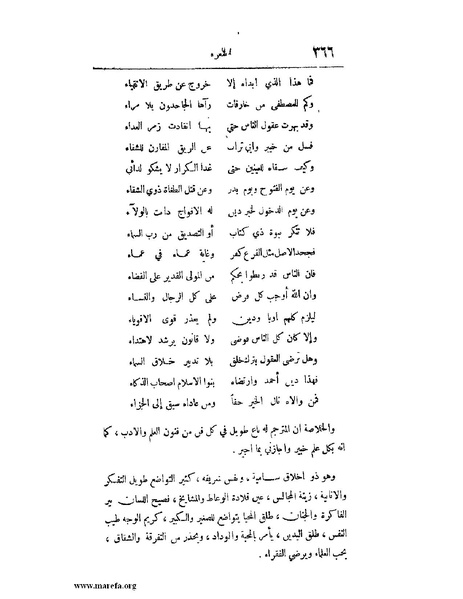 ٣٦٦
فما هذا الذي أبداه إلا خروج عن طريق الاتقياء
وكم للمصطفى من خارقات رآها الجاحدون بلا مراء
وقد بهرت عقول الناس حتى بها انقادت زمر العداء
فسل من خيبر وابي تراب عن الريق المقارن للشفاء
وكيف سقاه للعينين حتى غدا الكرار لا يشكو لدائي
وعن يوم الفتوح ويوم بدر وعن قتل الطغاة ذوي الشقاء
وعن يوم الدخول لخير دين له الافواج دانت بالولاء
فلا تنكر نبوة ذي كتاب أو التصديق من رب السماء
فجحد الاصل مثل الفرع كفر وغاية عماء في عماء
فان الناس قد ربطوا بحكم من المولى القدير على القضاء
وان الله أوجب كل فرض على كل الرجال والنساء
ليلزم كلهم أدبا ودين ولم يعذر قوى الاقوياء
وإلا كان كل الناس فوضى ولا قانون يرشد لاهتداء
وهل ترضى العقول بترك خلق بلا تدبير خلاق السماء
فهذا دين أحمد وارتضاه بنوا الاسلام اصحاب الذكاء
فمن والاه نال الخير حقاً ومن عاداه سبق إلى الجزاء
والخلاصة ان المترجم له باع طويل في كل فن من فنون العلم والادب ، كما
انه بكل علم خبير واجازني بما اجيز .
وهو ذو اخلاق سامية ، ونفس شريفه ، كثير التواضع طويل التفكر
والانابة ، زينة المجالس ، عين قلادة الوعاظ والمشايخ ، فصيح اللسان نير
الفاكرة والجنان ، طلق المحيا يتواضع للصغير والكبير ، كريم الوجه طيب
النفس ، طلق اليدين ، يأمر بالمحبة والوداد ، ويحذر من التفرقة والشقاق ،
يحب العلماء ويرضي الفقراء .
www.marefa.org